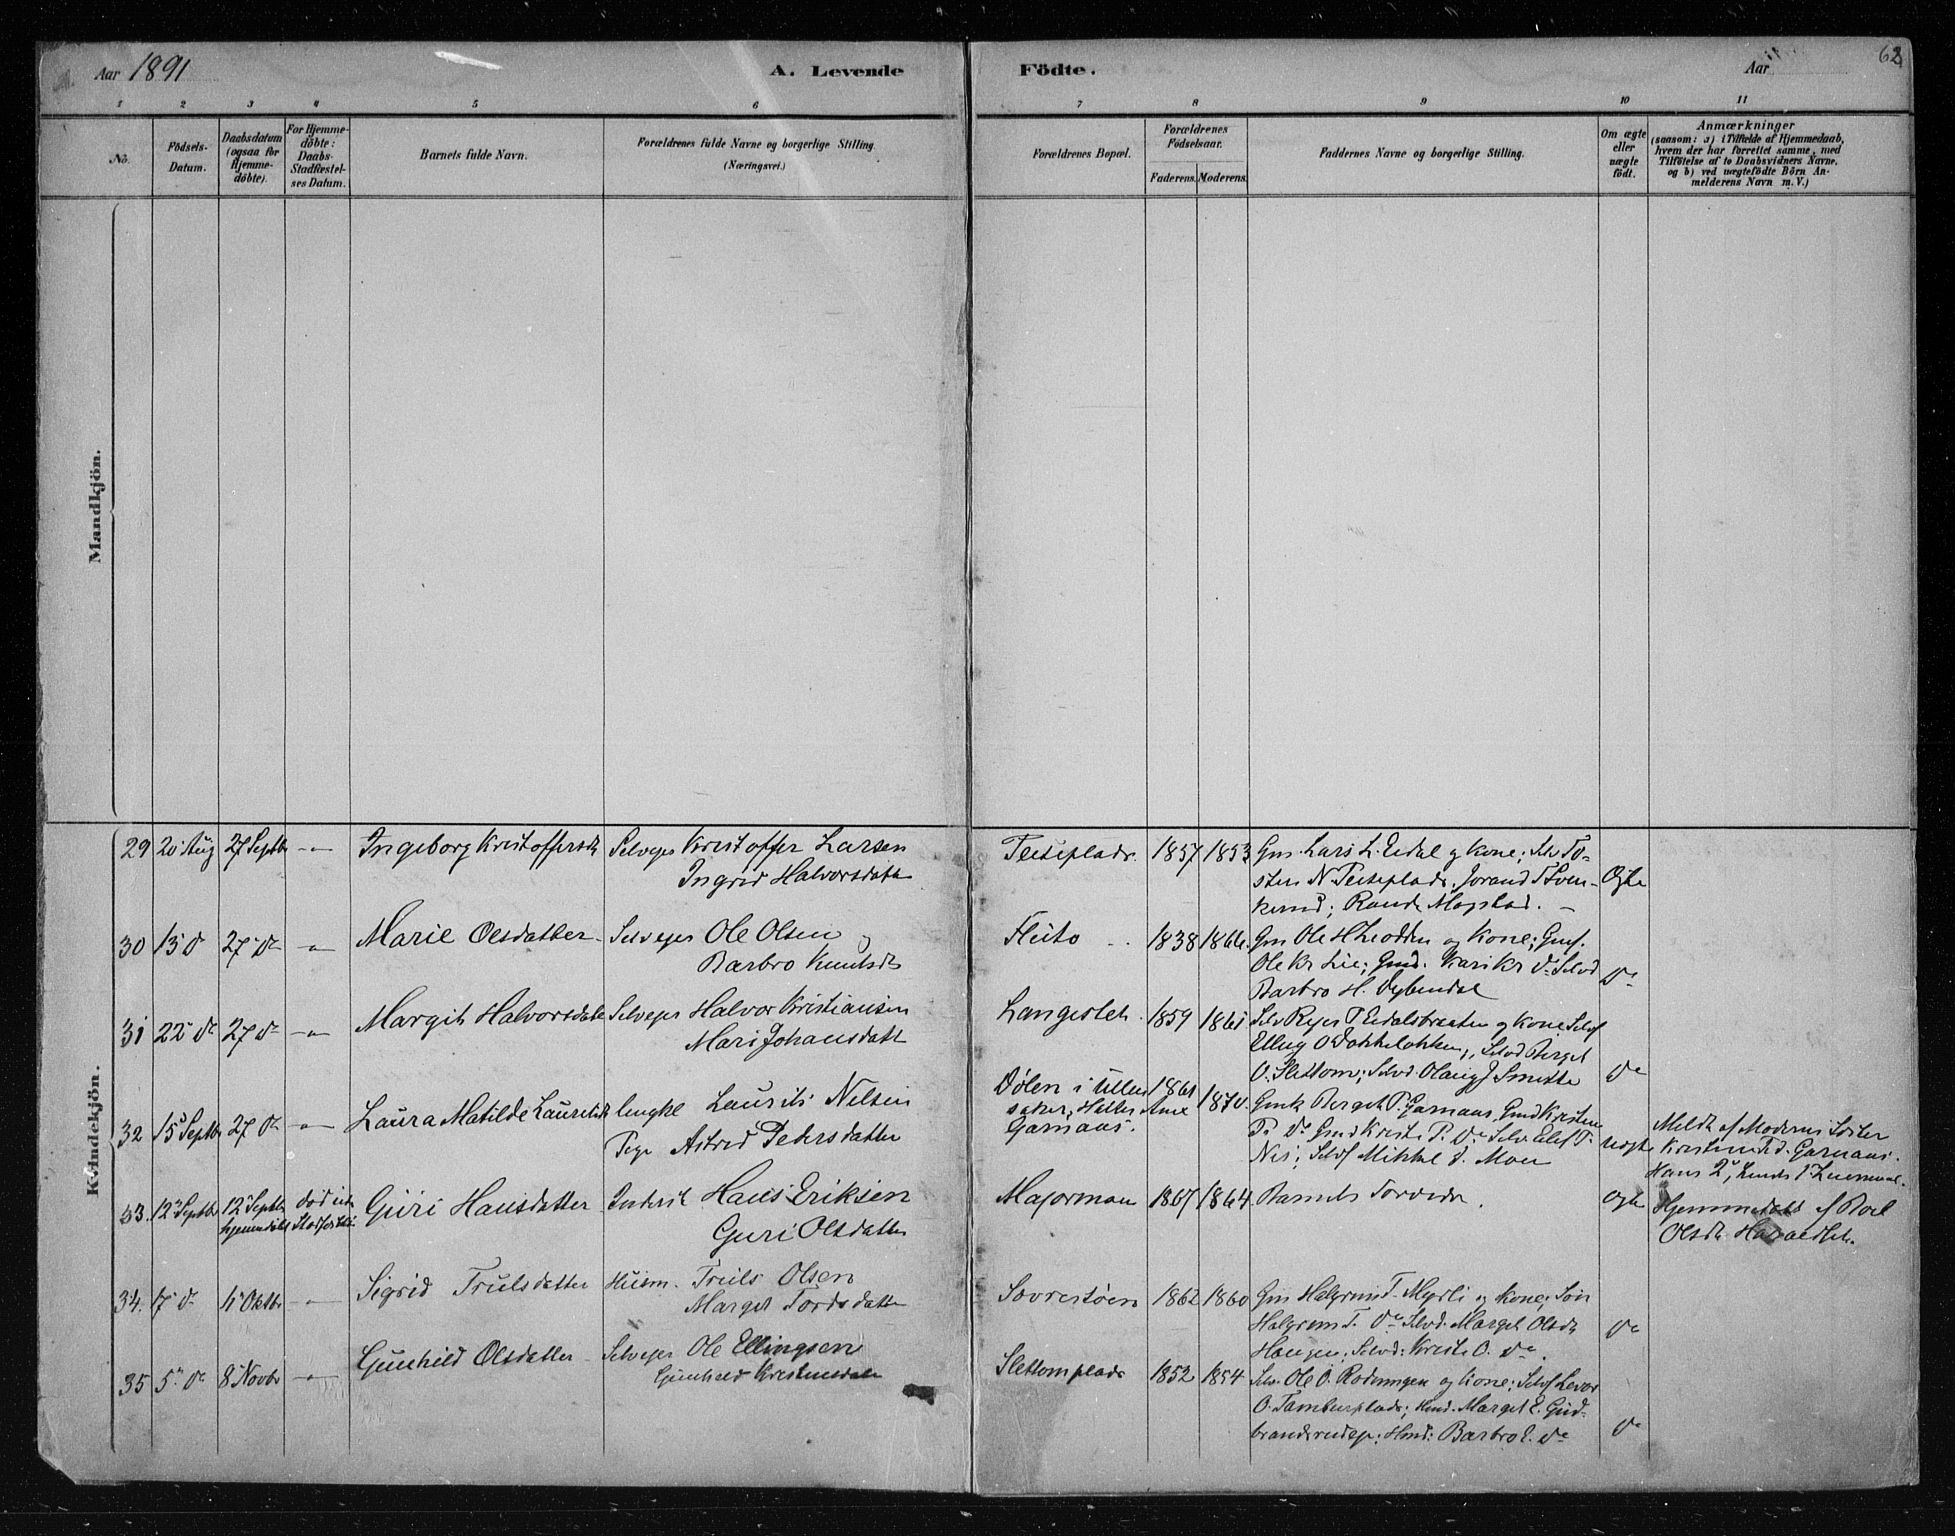 Aar 1891
A. Levende
Födte.
Aar
62
1 2 3 4 5 6 7 8 9 10 11
No.
Födsels-
Datum.
Daabsdatum
(ogsaa for
Hjemme-
döbte).
For Hjemme-
döbte:
Daabs-
Stadfæstel-
ses Datum.
Barnets fulde Navn.
Forældrenes fulde Navne og borgerlige Stilling.
(Næringsvei.)
Forældrenes Bopæl.
Forældrenes
Födselsaar.
Faderens. Moderens.
Faddernes Navne og borgerlige Stilling.
Om ægte
eller
uægte
födt.
Anmærkninger
(saasom: a) i Tilfælde af Hjemmedaab,
hvem der har forrettet samme, med
Tilföielse af to Daabsvidners Navne,
og b) ved uægtefödte Börn An-
melderens Navn m. V.)
Mandkjön.
Kvindekjön.
29 20 Aug 27 Septbr -"- Ingeborg Kristoffersdt Selvejer Kristoffer Larsen
Ingrid Halvorsdatt
Teiteplads. 1857 1853 Gm. Lars L. Eidal og Kone; Selv To-
sten N. Teiteplads. Jorand T.
Ægte
30 13 d 27 do -"- Marie Olsdatter Selvejer Ole Olsen og
Barbro Knutsdt
Fleito 1838 1866. Gm Ole H. og Kone; Gmsf.
Ole Kr Lie; Gmd. Kari Kr do Selvd
Barbro H.
do
31 22 do 27 do -"- Margit Halvorsdatt Selvejer Halvor Kristiansen
Mari Johansdatt
Langesteh. 1859 1861 Selv Rejer T Eidalsbraaten og Kone Selvsf
Elling O. Selvd Berget
O. Slettom; Selvd. Olaug J
do
32 15 Septbr 27 do -"- Laura Matilde Lauritsdt Ungkl Laurits Nilsen
Pige Astrid Pedersdatter
Dølen i Ullen
saker,
Garnaas.
1861 1870. Gmd Berget P. Garnaas. Gmd Kristine
P. do Gmd Kristi P. do Selv Elef P.
Nes; Selvsf Mikkel d. Moen
uægte
Meldt af Moderens Søster
Kristine P.d. Garnaas.
33. 12 Septbr 12 Septbr
hjemmedøbt
død uden
Stadfæst.
Guri Hansdatter Inderst Hans Eriksen
Guri Olsdatter
Majormoen 1867 1864. Barnets
Ægte Hjemmedøbt af
Olsdt
34. 17 do 11 Oktbr -"- Sigrid Trulsdatter Husm. Truls Olsen
Marget Tordsdatter
Sorrestøen 1862 1860 Gm Halgrim T. Myrli og Kone; Søn
Halgrim T. do Selvd. Marget Olsdt
Haugen; Selvd. Kristi O. do.
do
35 5 do 8 Novbr -"- Gunhild Olsdatter Selvejer Ole Ellingsen
Gunhild Kristensdatt
Slettomplads 1852 1854 Selv. Ole O. Rodningen og Kone; Selvsf Levor
O. Tamburplads; Hmd. Marget E. Gud-
brandsrudeje; Hmd: Barbro E. do
do